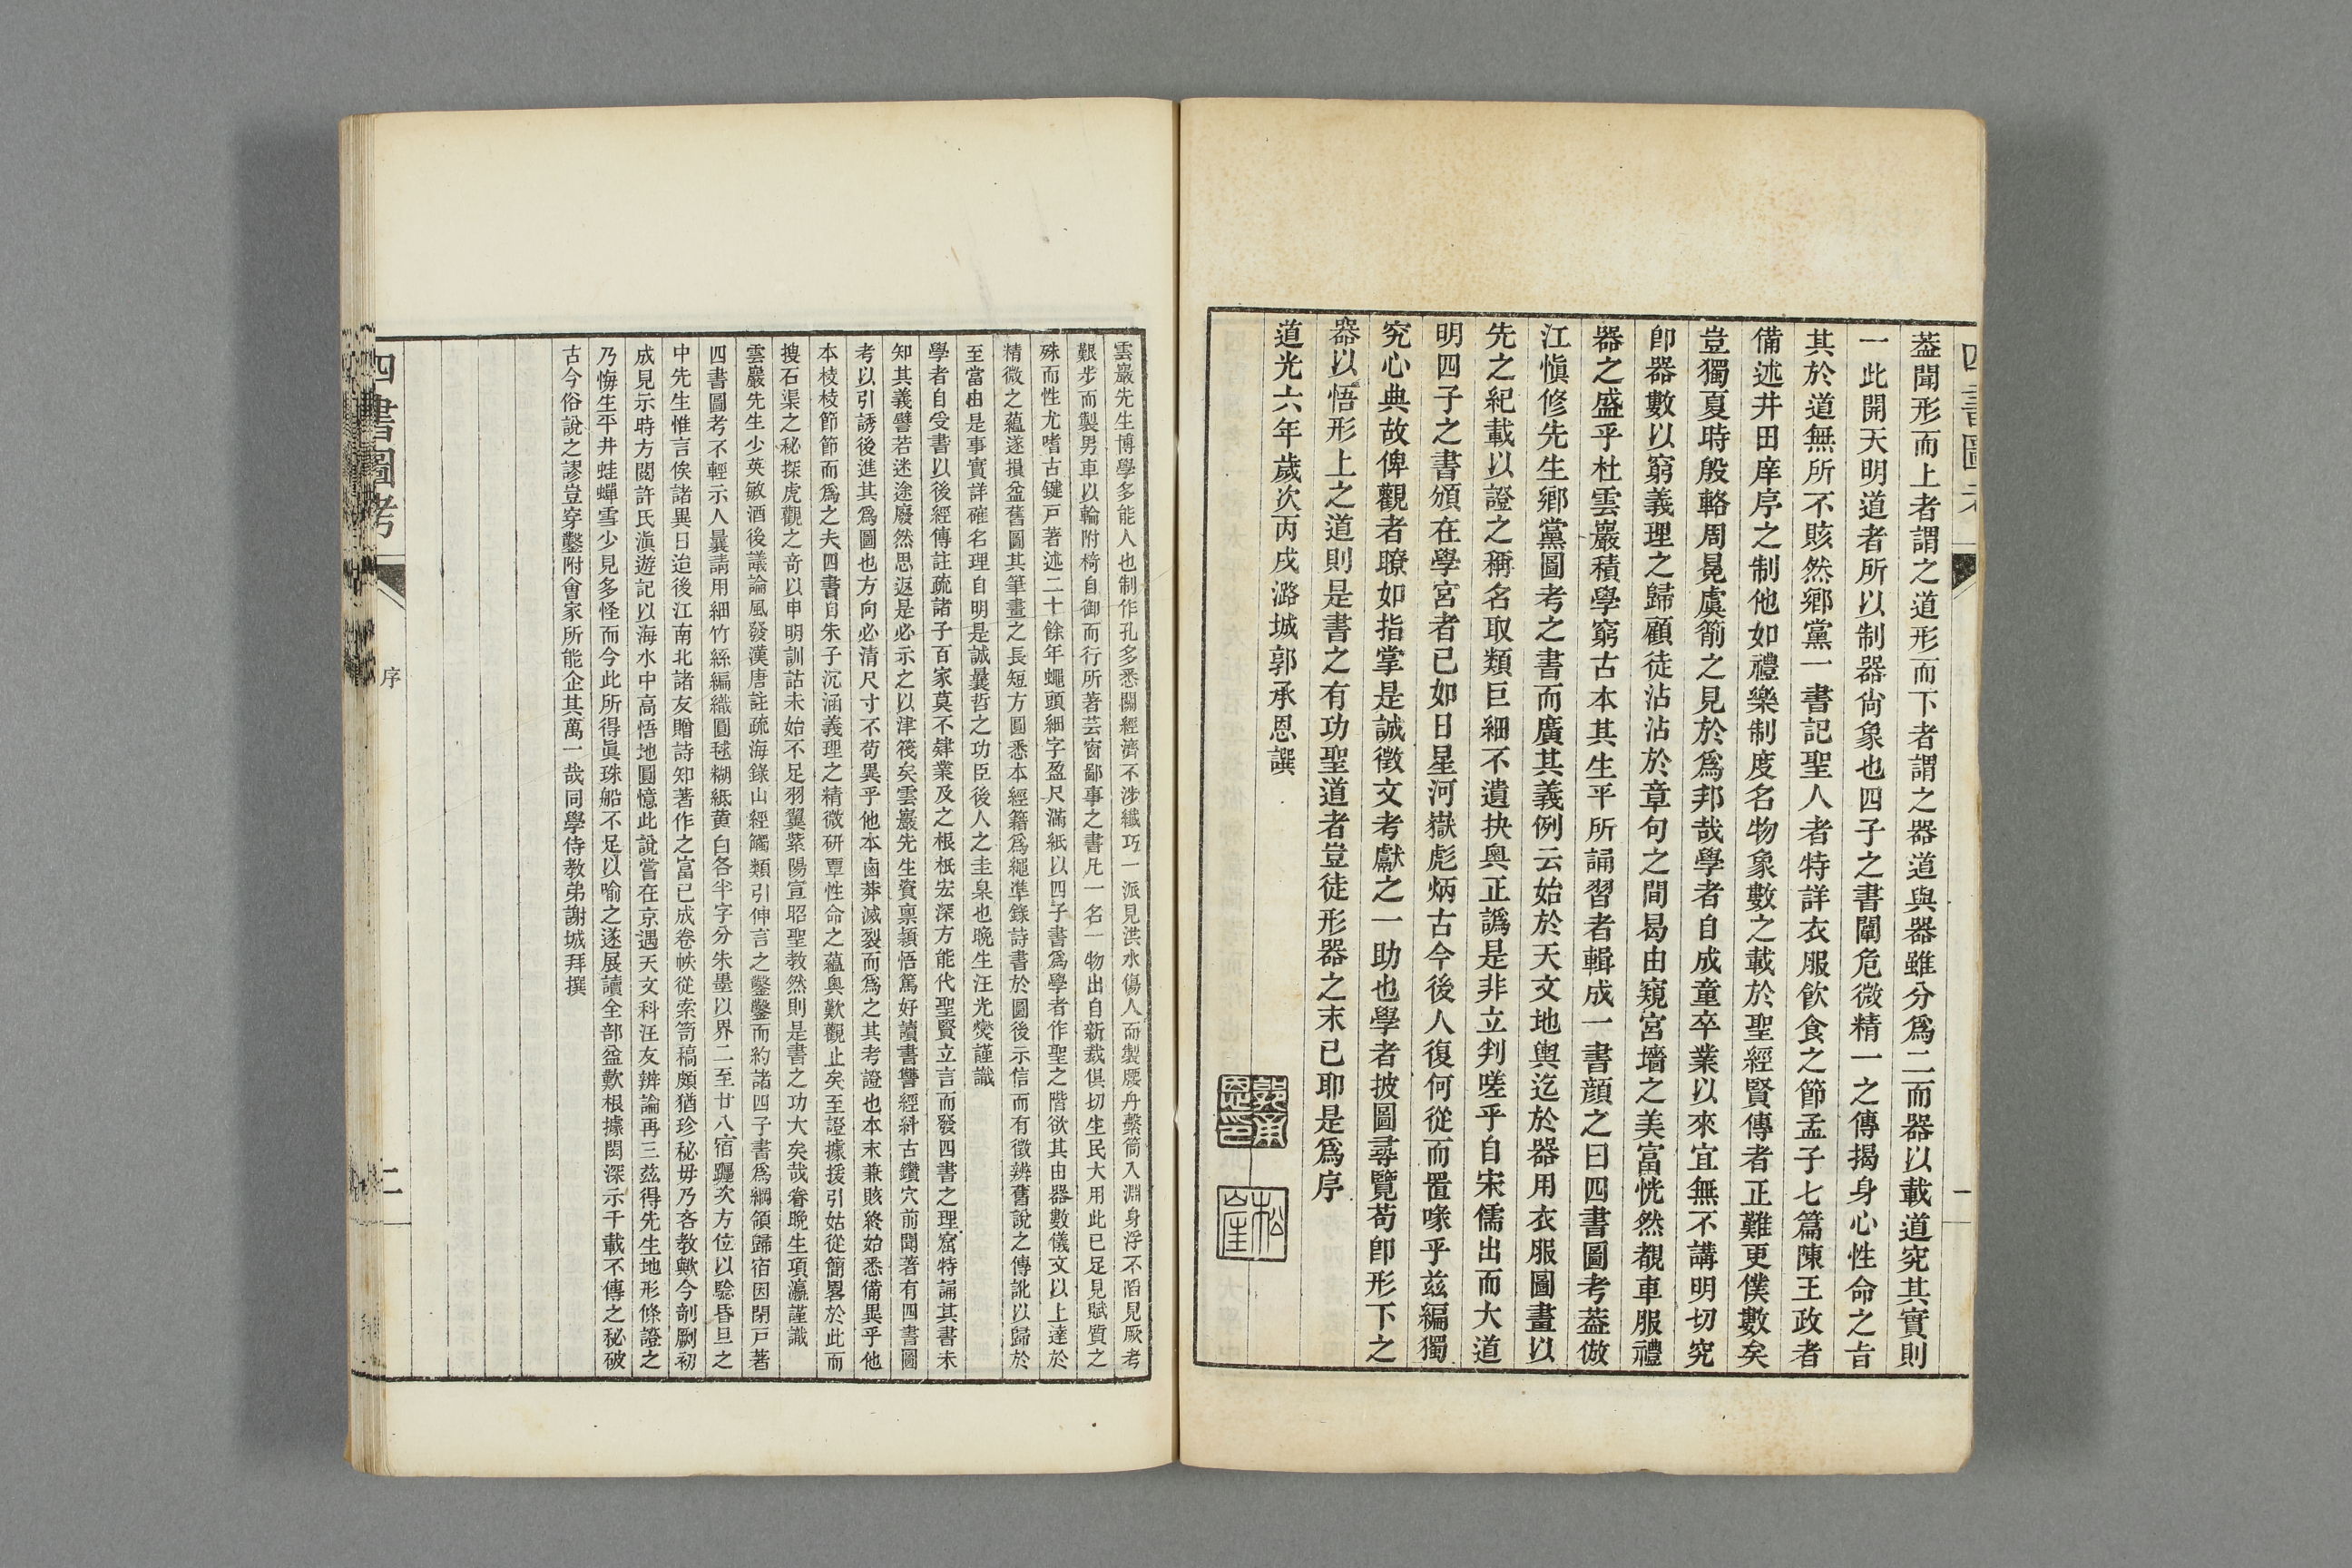 蓋聞形而上者謂之道形而下者謂之器道與器雖分爲二而器以載道究其實則
一此開天明道者所以制器尙象也四子之書闡危微精一之傳揭身心性命之旨
其於道無所不賅然鄕黨一書記聖人者特詳衣服飮食之節孟子七篇陳王政者
備述井田庠序之制他如禮樂制度名物象數之載於聖經賢傳者正難更僕數矣
豈獨夏時殷輅周冕虞箾之見於爲邦哉學者自成童卒業以來宜無不講明切究
卽器數以窮義理之歸顧徒沾沾於章句之間曷由窺宮墻之美富恍然覩車服禮
器之盛乎杜雲巖積學窮古本其生平所誦習者輯成一書顏之曰四書圖考蓋倣
江愼修先生鄕黨圖考之書而廣其義例云始於天文地輿迄於器用衣服圖畫以
先之紀載以證之稱名取類巨細不遺抉奧正譌是非立判嗟乎自宋儒出而大道
明四子之書頒在學宮者已如日星河嶽彪炳古今後人復何從而置喙乎茲編獨
究心典故俾觀者瞭如指掌是誠徵文考獻之一助也學者披圖尋覽苟卽形下之
器以悟形上之道則是書之有功聖道者豈徒形器之末已耶是爲序
道光六年歲次丙戌潞城郭承恩譔
松崖
雲巖先生博學多能人也制作孔多悉關經濟不涉纖巧一派見洪水傷人而製腰舟繫筒入淵身浮不滔見厥考
艱步而製男車以輪附椅自御而行所著芸窗鄙事之書凡一名一物出自新裁俱切生民大用此已足見賦質之
殊而性尤嗜古鍵戸著述二十餘年蠅頭細字盈尺滿紙以四子書爲學者作聖之階欲其由器數儀文以上達於
精微之蘊遂損益舊圖其筆畫之長短方圓悉本經籍爲繩準錄詩書於圖後示信而有徵辨舊說之傳訛以歸於
至當由是事實詳確名理自明是誠曩哲之功臣後人之圭臬也晩生汪光爕謹識
學者自受書以後經傳註疏諸子百家莫不肄業及之根柢宏深方能代聖賢立言而發四書之理窟特誦其書未
知其義譬若迷途廢然思返是必示之以津筏矣雲巖先生資稟穎悟篤好讀書讐經糾古鑽穴前聞著有四書圖
考以引誘後進其爲圖也方向必清尺寸不苟異乎他本鹵莽滅裂而爲之其考證也本末兼賅終始悉備異乎他
本枝枝節節而爲之夫四書自朱子沉涵義理之精微硏覃性命之蘊奧歎觀止矣至證據援引姑從簡畧於此而
搜石渠之秘探虎觀之奇以申明訓詁未始不足羽翼紫陽宣昭聖敎然則是書之功大矣哉眷晩生項瀛謹識
雲巖先生少英敏酒後議論風發漢唐註疏海錄山經觸類引伸言之鑿鑿而約諸四子書爲綱領歸宿因閉戸著
四書圖考不輕示人曩請用細竹絲編織圓毬糊紙黄白各半字分朱墨以界二至廿八宿躔次方位以騐昏旦之
中先生惟言俟諸異日迨後江南北諸友贈詩知著作之富已成卷帙從索笥稿頗猶珍秘毋乃吝敎歟今剞劂初
成見示時方閱許氏滇遊記以海水中高悟地圓憶此說嘗在京遇天文科汪友辨論再三茲得先生地形條證之
乃悔生平井蛙蟬雪少見多怪而今此所得眞珠船不足以喻之遂展讀全部益歎根據閎深示千載不傳之秘破
古今俗說之謬豈穿鑿附會家所能企其萬一哉同學侍敎弟謝城拜撰
四書圖考
序
二